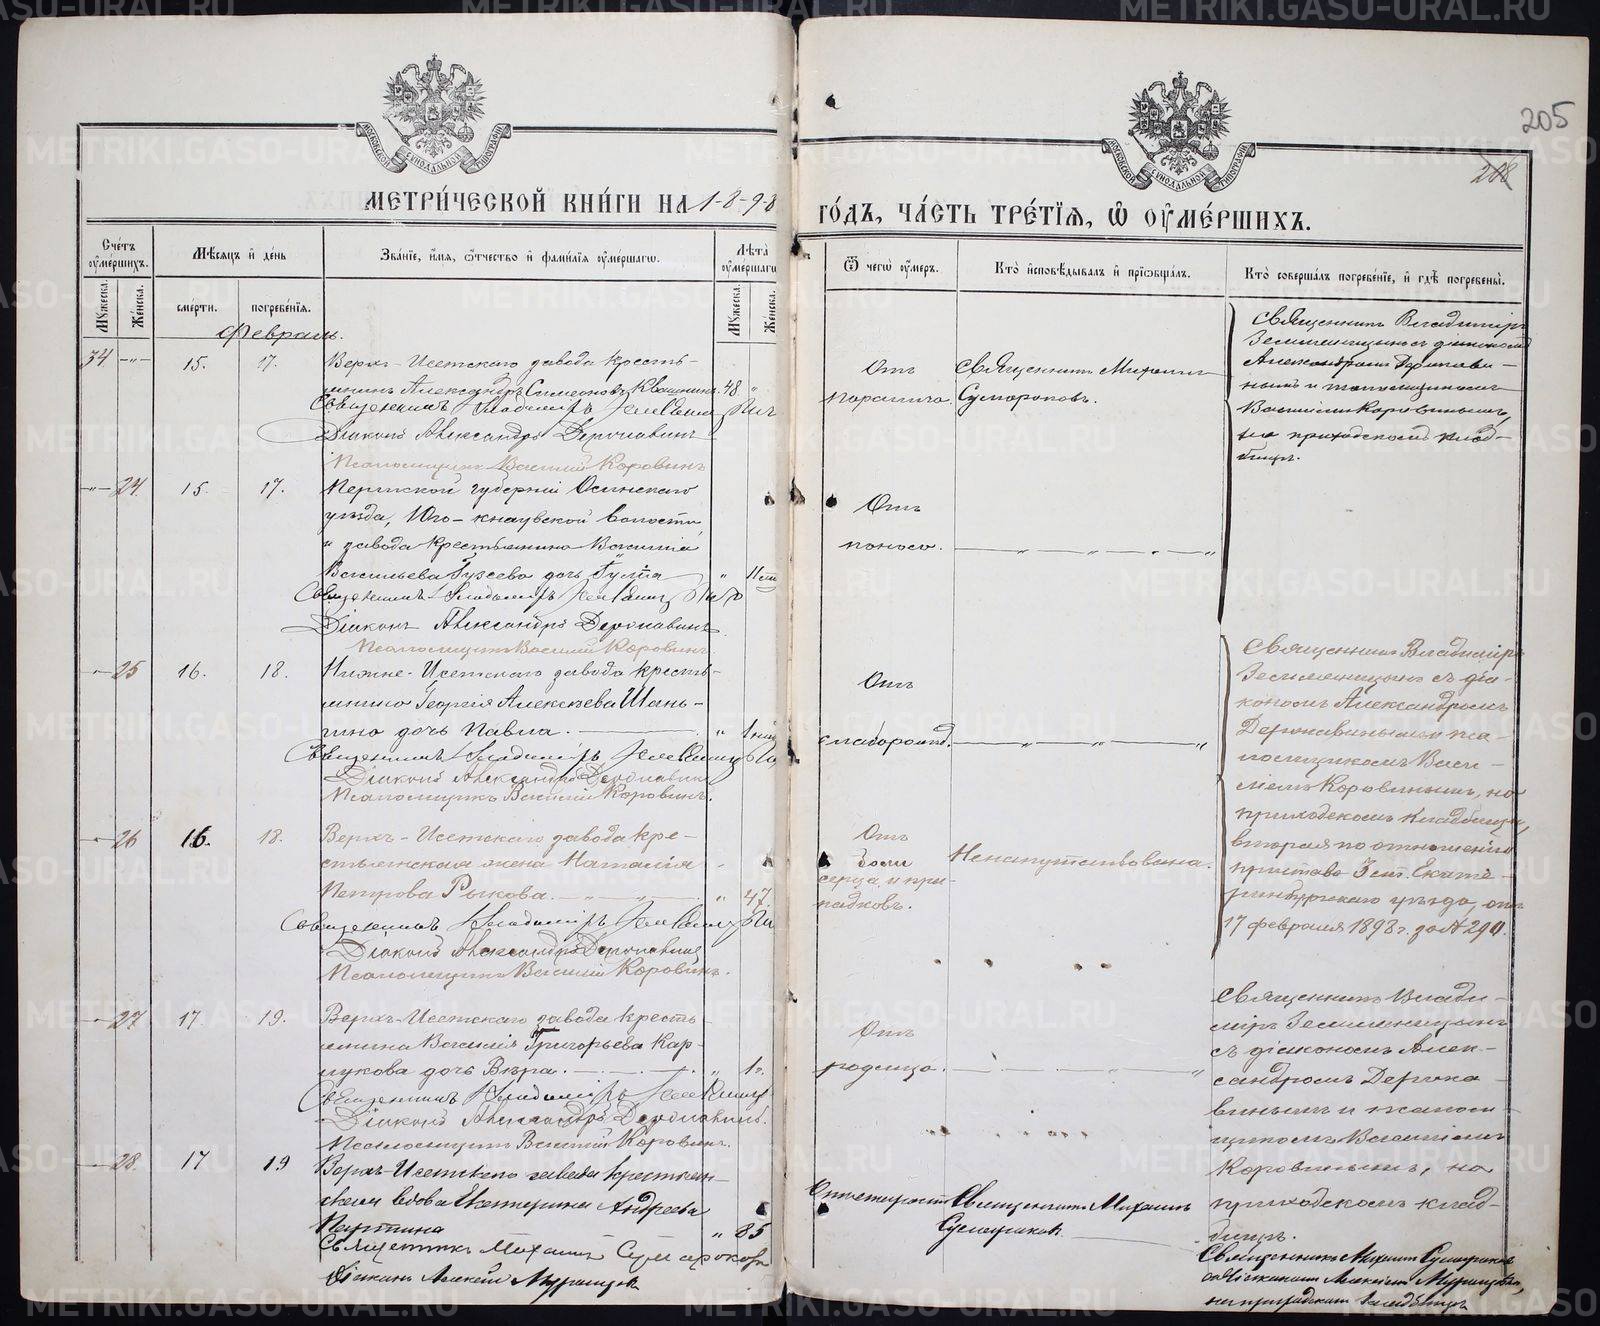 205
208
МОСКОВСКОЙ СѴНОДАЛЬНОЙ ТИПОГРАФІИ
МОСКОВСКОЙ СѴНОДАЛЬНОЙ ТИПОГРАФІИ
МЕТРИ́ЧЕСКОЙ КНИ́ГИ НА 1898
ГО́ДЪ, ЧА́СТЬ ТРЕ́ТІѦ, Ѡ̑ ОУ҆МЕ́РШИХЪ.
Сче́тъ оу҆ме́ршихъ.
Мѣ́сѧцъ и҆ де́нь
Зва́нїе, и҆́мѧ, ѻ҆́тчество и҆ фами́лїѧ оу҆ме́ршагѡ.
Лѣ́та оу҆ме́ршагѡ
Ѿ чегѡ̀ оу҆́меръ.
Кто̀ и҆сповѣ́дывалъ и҆ прїѡбща́лъ.
Кто̀ соверша́лъ погребе́нїе, и҆ гдѣ̀ погребены̀.
Мꙋ́жеска.
Же́нска.
сме́рти.
погребе́нїѧ.
Мꙋ́жеска.
Же́нска.
Февраль.
34 -"- 15. 17. Верхъ-Исетскаго завода кресть-
янинъ Александръ Симеоновъ Квашнинъ. 48 "
Священникъ Владиміръ
Діаконъ Александръ Державинъ
Псаломщикъ Василій Коровинъ
Отъ
паралича.
Священникъ Михаилъ
Сумароковъ.
Священникъ Владиміръ
Земляницынъ съ діакономъ
Александромъ Держави-
нымъ и псаломщикомъ
Василіемъ Коровинымъ,
на приходскомъ клад-
бищѣ.
-"- 24. 15. 17. Пермской губерніи Осинскаго
уѣзда, Юго-кнауфской волости
и завода крестьянина Василія
Васильева Гужева дочь Юлія "
Священникъ Владиміръ
Діаконъ Александръ Державинъ
Псаломщикъ Василій Коровинъ
Отъ
поноса. " " "
25 16. 18. Нижне-Исетскаго завода кресть-
янина Георгія Алексѣева Шань-
гина дочь Павла. "
Священникъ Владиміръ
Діаконъ Александръ Державинъ
Псаломщикъ Василій Коровинъ.
Отъ
слаборожд. " " "
Священникъ Владиміръ
Земляницынъ съ діа-
кономъ Александромъ
Державинымъ и пса-
ломщикомъ Васи-
ліемъ Коровинымъ, на
приходскомъ кладбищѣ,
вторая по отношенію
пристава 3 ст. Екате-
ринбургскаго уѣзда, отъ
17 февраля 1898 г. за № 290.
26 16. 18. Верхъ-Исетскаго завода кре-
стьянская жена Наталія
Петрова Рыкова. " 47.
Священникъ Владиміръ
Діаконъ Александръ Державинъ
Псаломщикъ Василій Коровинъ.
Отъ
боли
сердца и при-
падковъ.
Ненапутствована.
27 17. 19. Верхъ-Исетскаго завода кресть-
янина Василія Григорьева Кар-
пукова дочь Вѣра. " 1 г.
Священникъ Владиміръ
Діаконъ Александръ Державинъ.
Псаломщикъ Василій Коровинъ.
Отъ
родимца. " "
Священникъ Влади-
міръ Земляницынъ
съ діакономъ Алек-
сандромъ Держа-
винымъ и псалом-
щикомъ Василіемъ
Коровинымъ, на
приходскомъ клад-
бищѣ.
28. 17 19 Верхъ-Исетскаго завода крестьян-
ская вдова Екатерина Андреева
Партина " 85
Священникъ Михаилъ Сумароковъ
Діаконъ Алексѣй Мурашовъ
Отъ старости
Священникъ Михаилъ
Сумароковъ
Священникъ Михаилъ Сумароковъ
съ діакономъ Алексѣемъ
на приходскомъ кладбищѣ
METRIKI.GASO-URAL.RU